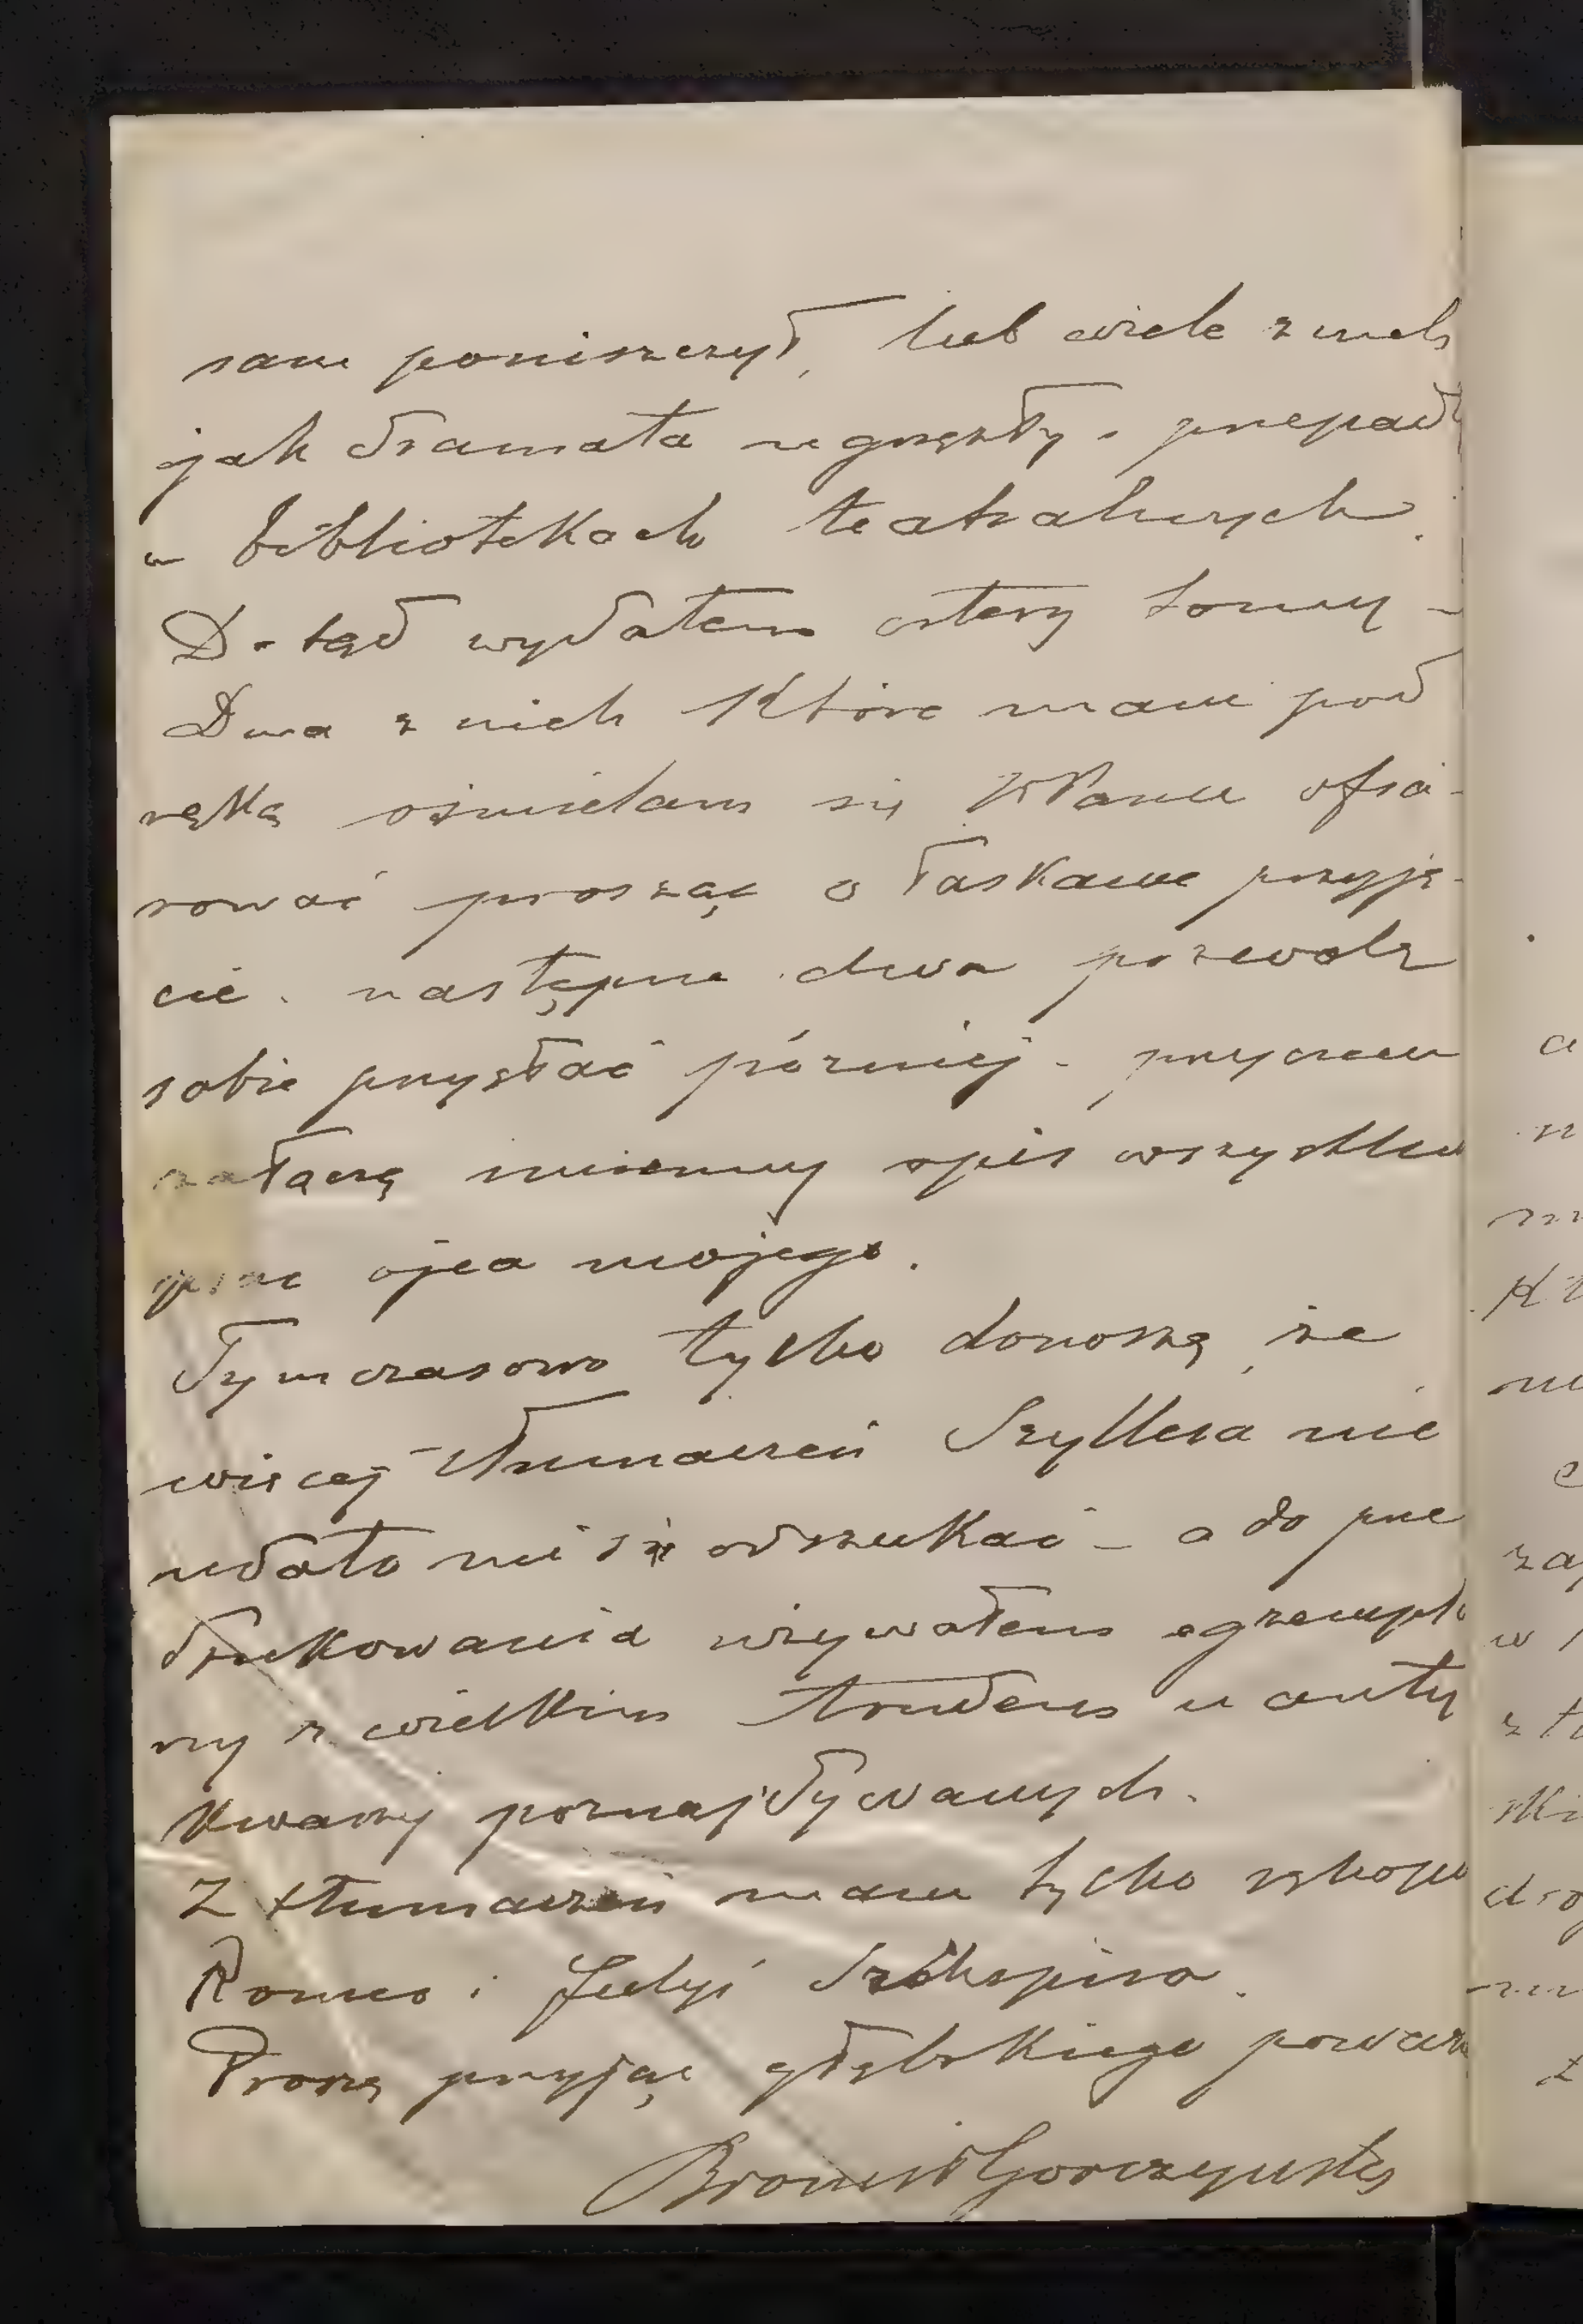 sam poniszczył, lub wiele z nich
jak dramata ugrzęzły i przepadły
w bibliotekach teatralnych.
Dotąd wydałem cztery tomy –
Dwa z nich które mam pod
ręką ośmielam się WPanu ofia-
rować prosząc o łaskawe przyję-
cie. następne dwa pozwolę
sobie przysłać później – przyczem
załączę imienny spis wszystkich
prac ojca mojego.
Tymczasowo tylko donoszę, że
więcej tłumaczeń Szyllera nie
udało mi się odszukać – a do prze
drukowania używałem egzempla
rzy z wielkim trudem u anty
kwarzy poznajdywanych.
Z tłumaczeń mam tylko rękopis
Romeo i Julyi Szekspira.
Proszę przyjąć głębokiego poważa
Bronisł Gorczyński